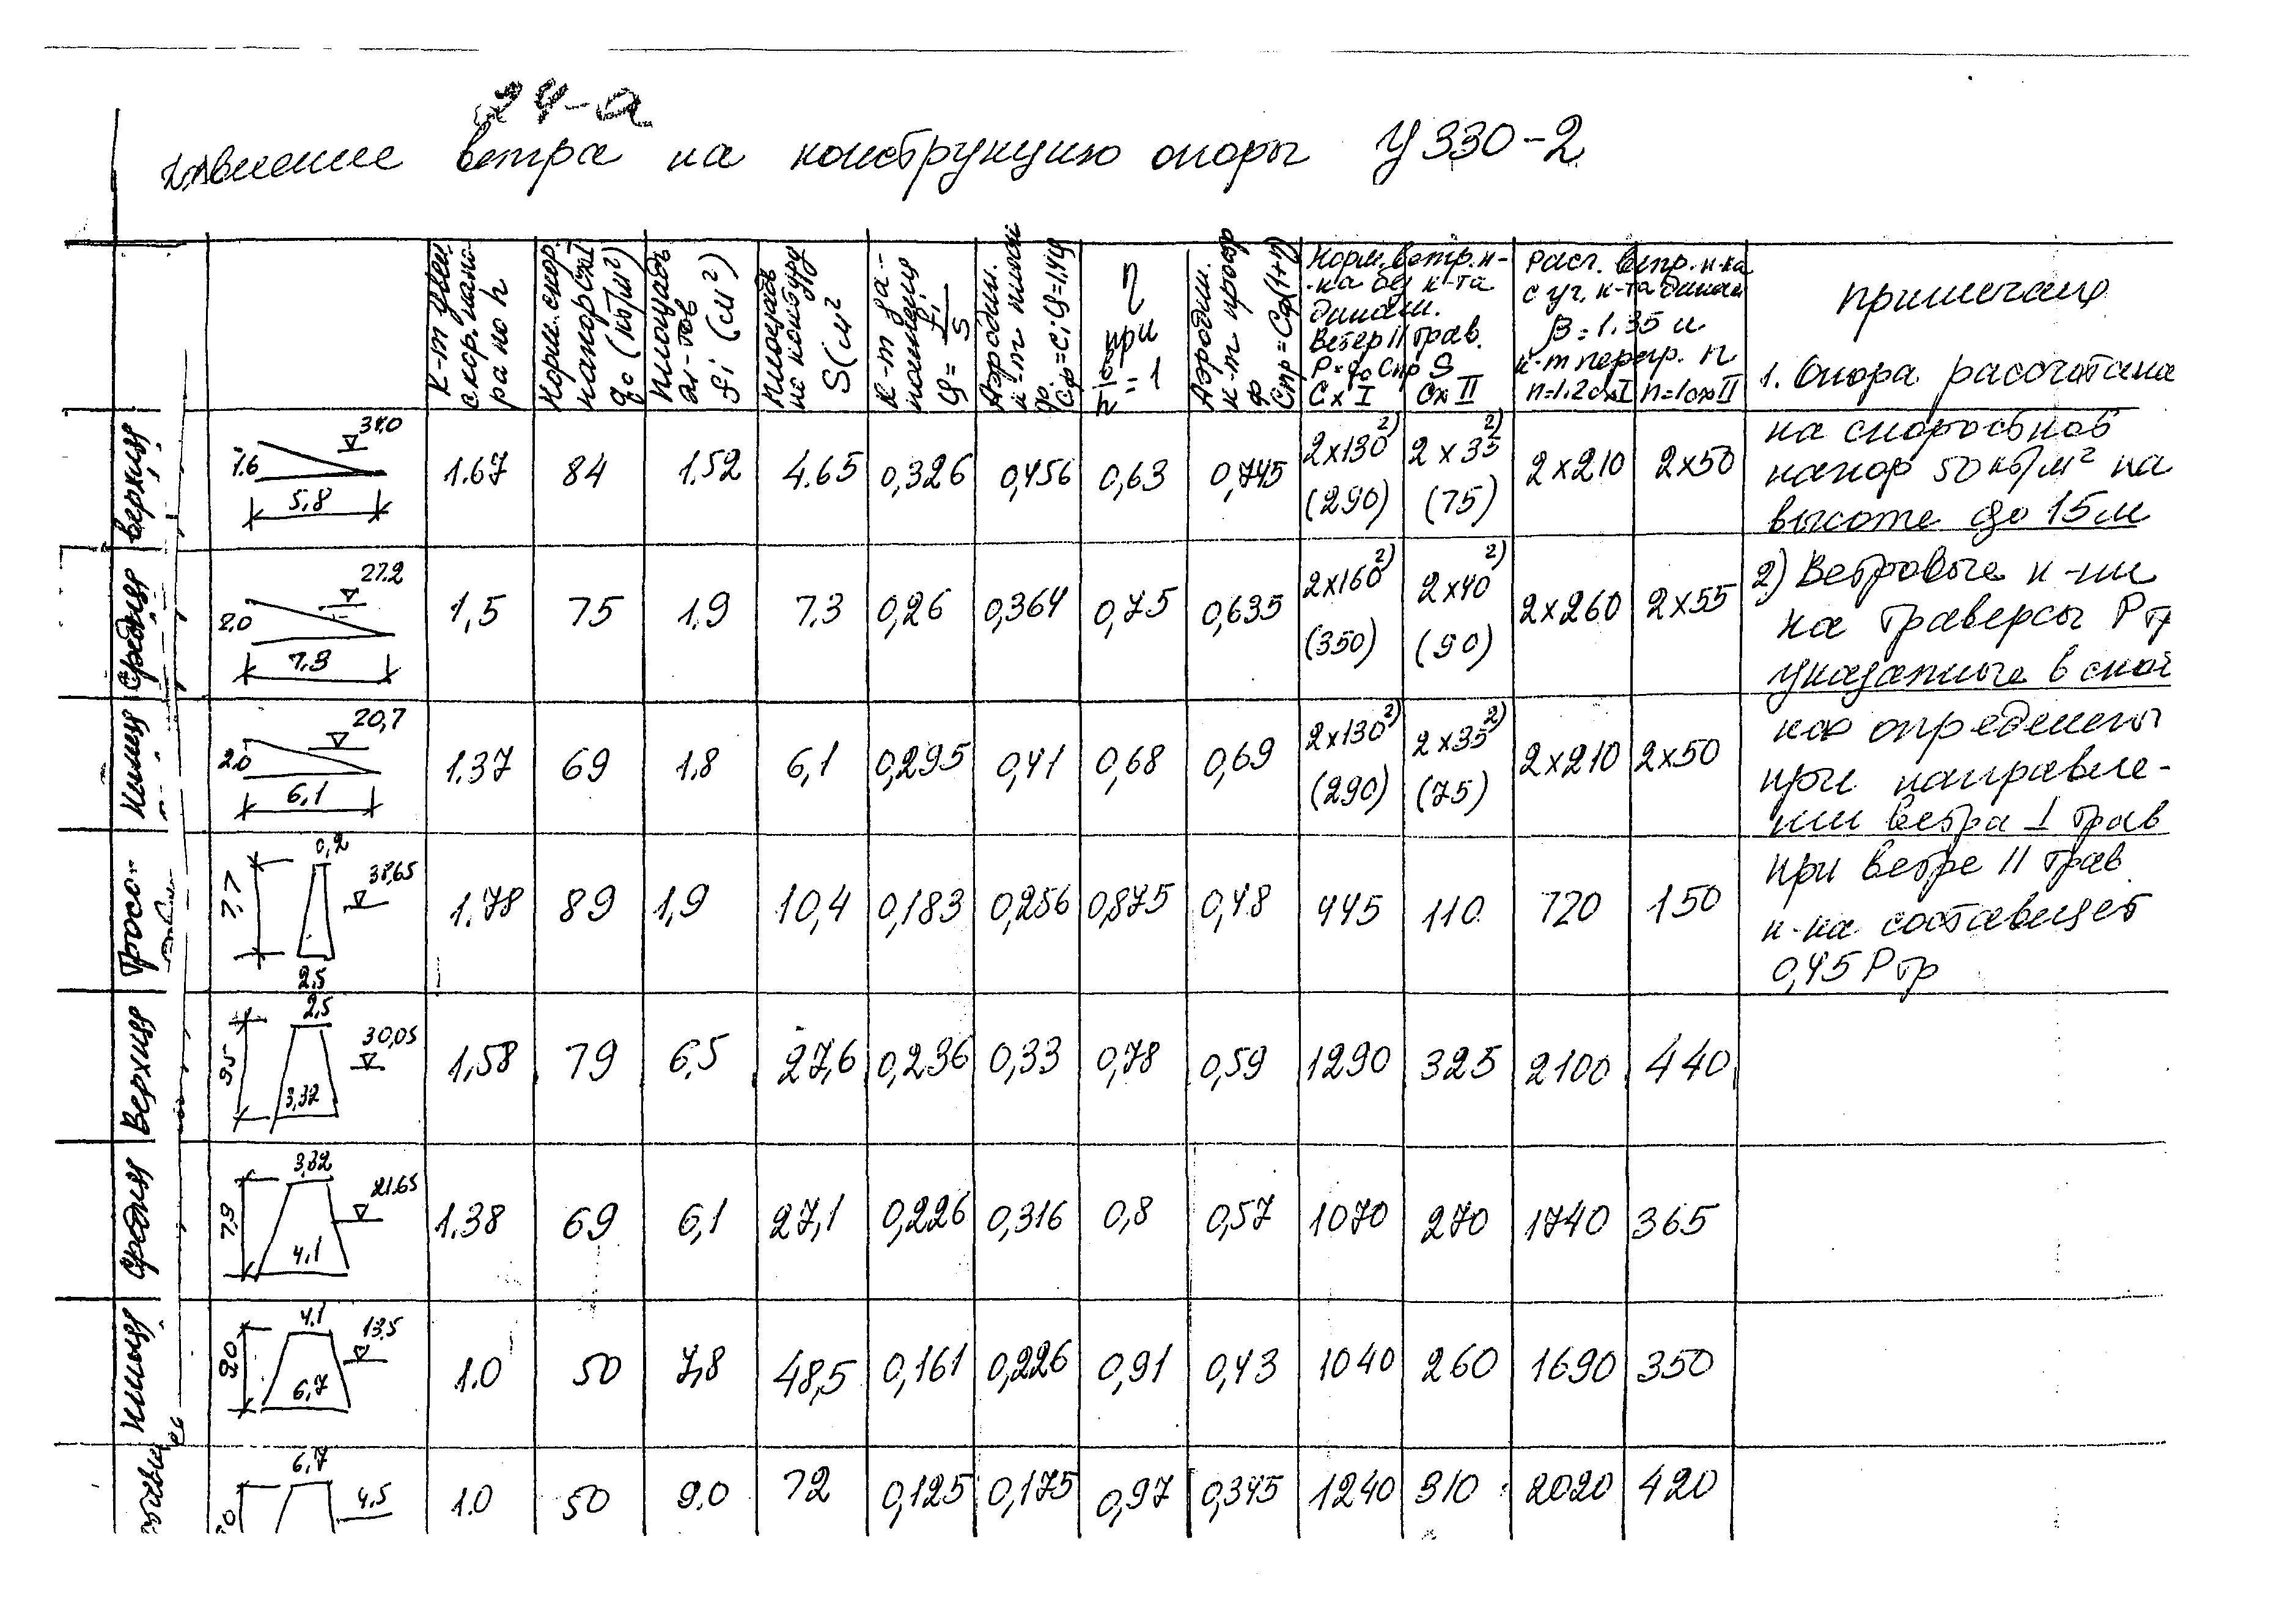 24-а
давление ветра на конструкцию опоры У330-2
К-т увел. скор. напора по h
Норм. скор. напор (схI) q₀ (кг/м²)
Площадь эл-тов fi (м²)
Площадь по контуру S (м²
К-т заполнения φ = fi/S
Аэродин. к-т плоск. ф. Сф=Ciφ=1.4φ
η при b/h = 1
Аэродин. к-т простр ф. Спр=Сф(1+η)
Норм. ветр. н-ка без к-та динам. Ветер II трав. P=q₀ Спр S
Сх I
Сх II
Расч. ветр. н-ка с уч. к-та динам β=1.35 и к-т перегр. n
n=1.2 схI
n=1.0 схII
Примечание
верхняя 1.6 5,8 34.0 1.67 84 1.52 4.65 0,326 0,456 0,63 0,745 2х130²⁾ (290) 2х35²⁾ (75) 2х210 2х50
Средняя 2.0 7.3 27.2 1,5 75 1.9 7.3 0,26 0,364 0,75 0,635 2х160²⁾ (350) 2х40²⁾ (90) 2х260 2х55
Нижняя 2.0 6,1 20,7 1.37 69 1.8 6,1 0,295 0,41 0,68 0,69 2х130²⁾ (290) 2х35²⁾ (75) 2х210 2х50
Тросо- 0,2 7,7 2,5 38,65 1.78 89 1,9 10,4 0,183 0,256 0,875 0,48 445 110 720 150
Верхняя 2,5 9.5 3,32 30,05 1,58 79 6,5 27,6 0,236 0,33 0,78 0,59 1290 325 2100 440
Средняя 3,32 7.3 4.1 21.65 1.38 69 6,1 27,1 0,226 0,316 0,8 0,57 1070 270 1740 365
Нижняя 4.1 9.0 6,7 13.5 1.0 50 7,8 48,5 0,161 0,226 0,91 0,43 1040 260 1690 350
6,7 4,5 1.0 50 9.0 72 0,125 0,175 0,97 0,345 1240 310 2020 420
1. Опора рассчитана
на скоростной
напор 50 кг/м² на
высоте до 15м
2) Ветровые н-ки
на траверсы Ртр
указанные в скоб
ках определены
при направле-
нии ветра ⊥ трав
при ветре II трав
н-ка составляет
0,45 Ртр